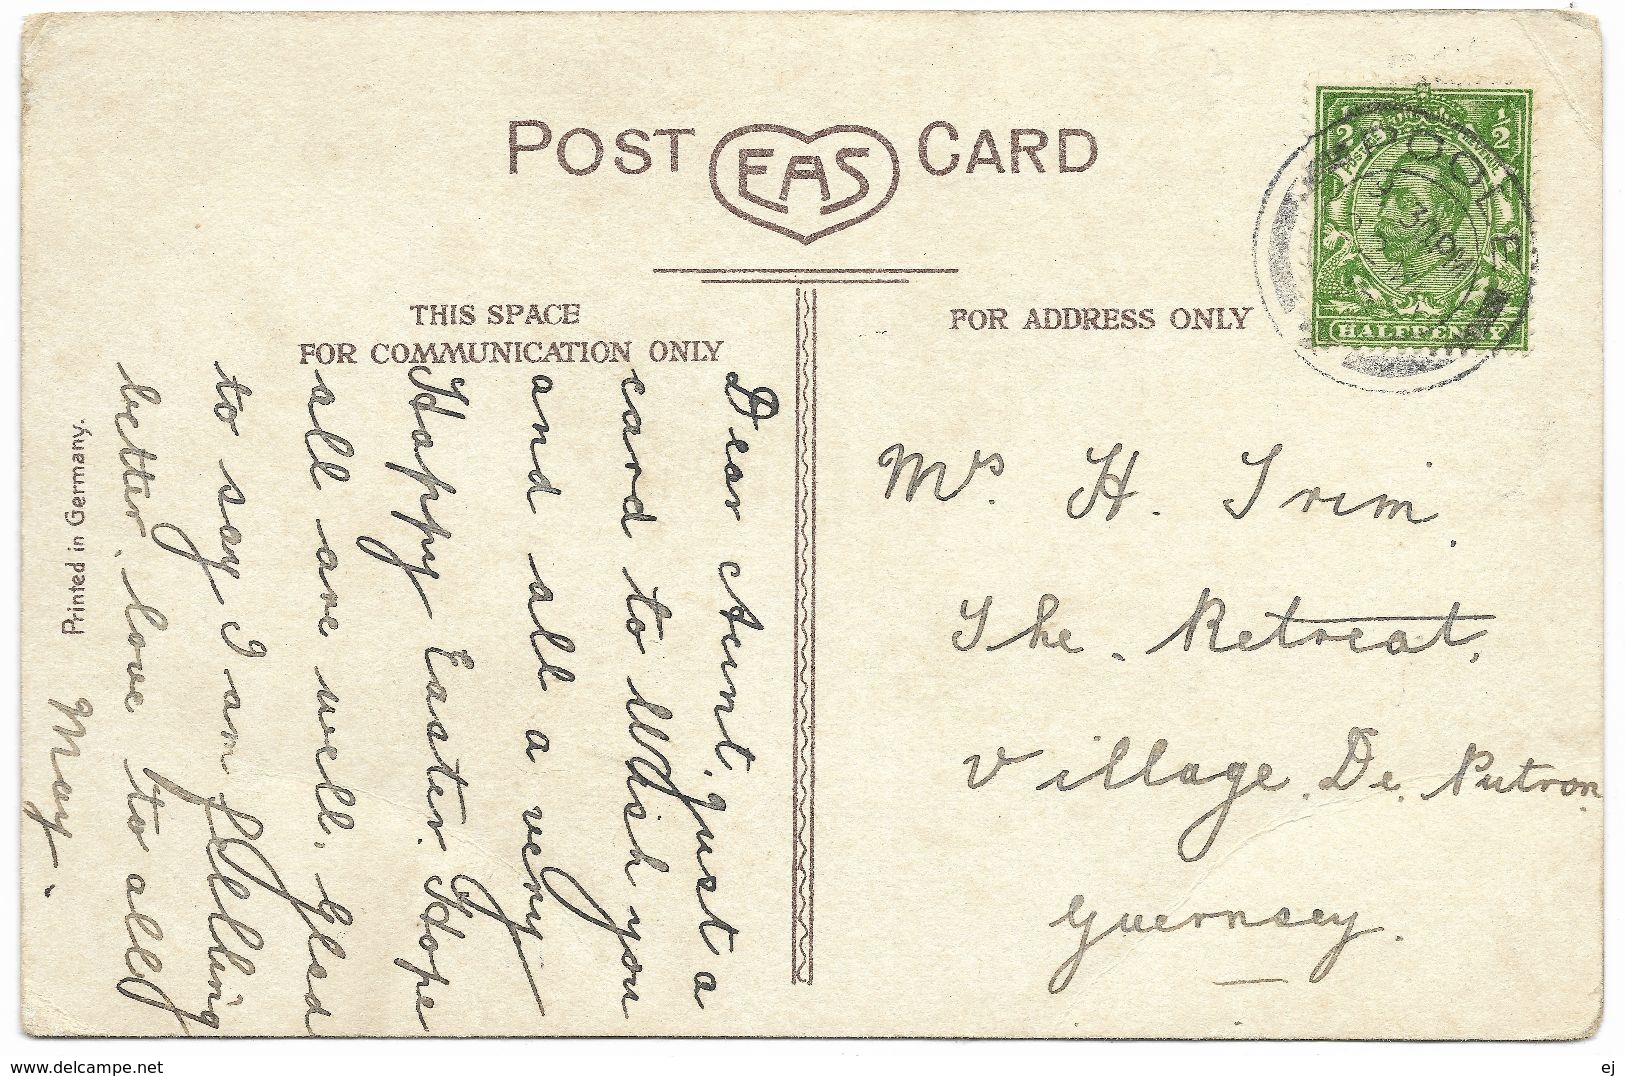 POST EAS CARD
THIS SPACE
FOR COMMUNICATION ONLY
FOR ADDRESS ONLY
Printed in Germany.
POOLE
HALFPENNY
½ ½
Dear Aunt, just a
card to Wish you
and all a very
Happy Easter. Hope
all are well, Glad
to say I am feeling
better, love to all
May.
Mrs. H. Trim.
The. Retreat,
Village. De. Putron
Guernsey.
www.delcampe.net
ej